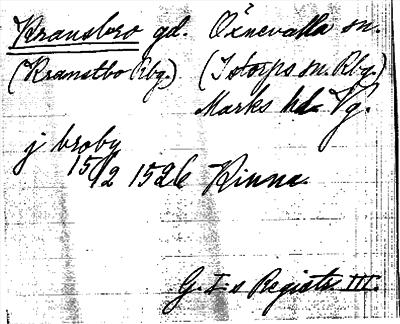 Kransbro gd. Öxnevalla sn.
(Kranstbo Rbg.) (Istorps sn. Rbg.)
Marks hd. Vg.
j broby
15/2 1526 Kinne
G. I:s Registr III.